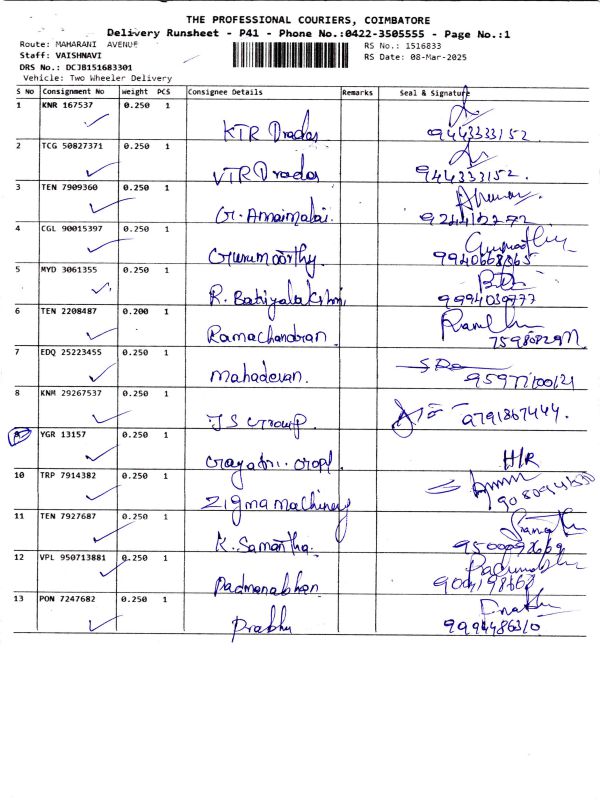 THE PROFESSIONAL COURIERS, COIMBATORE
Delivery Runsheet - P41 - Phone No.:0422-3505555 - Page No.:1
Route: MAHARANI AVENUE RS No.: 1516833
Staff: VAISHNAVI RS Date: 08-Mar-2025
DRS No.: DCJB151683301
Vehicle: Two Wheeler Delivery
S No Consignment No Weight PCS Consignee Details Remarks Seal & Signature
1 KNR 167537 0.250 1
KTR Dradas 9443333152
2 TCG 50827371 0.250 1
VTR Dradas 944333152.
3 TEN 7909360 0.250 1
G. Annaimalai.
4 CGL 90015397 0.250 1
Gurumoorthy 9940668865
5 MYD 3061355 0.250 1
R. Bakiyalakshmi 9994039777
6 TEN 2208487 0.200 1
Ramachandran
7 EDQ 25223455 0.250 1
Mahadevan. 9597700121
8 KNM 29267537 0.250 1
JS Group 9791867444.
9 YGR 13157 0.250 1
Gayatri. H/R
10 TRP 7914382 0.250 1
Zigma Machinery
11 TEN 7927687 0.250 1
K. Samantha.
12 VPL 950713881 0.250 1
Padmanabhan
13 PON 7247682 0.250 1
Prabhu 9994486310